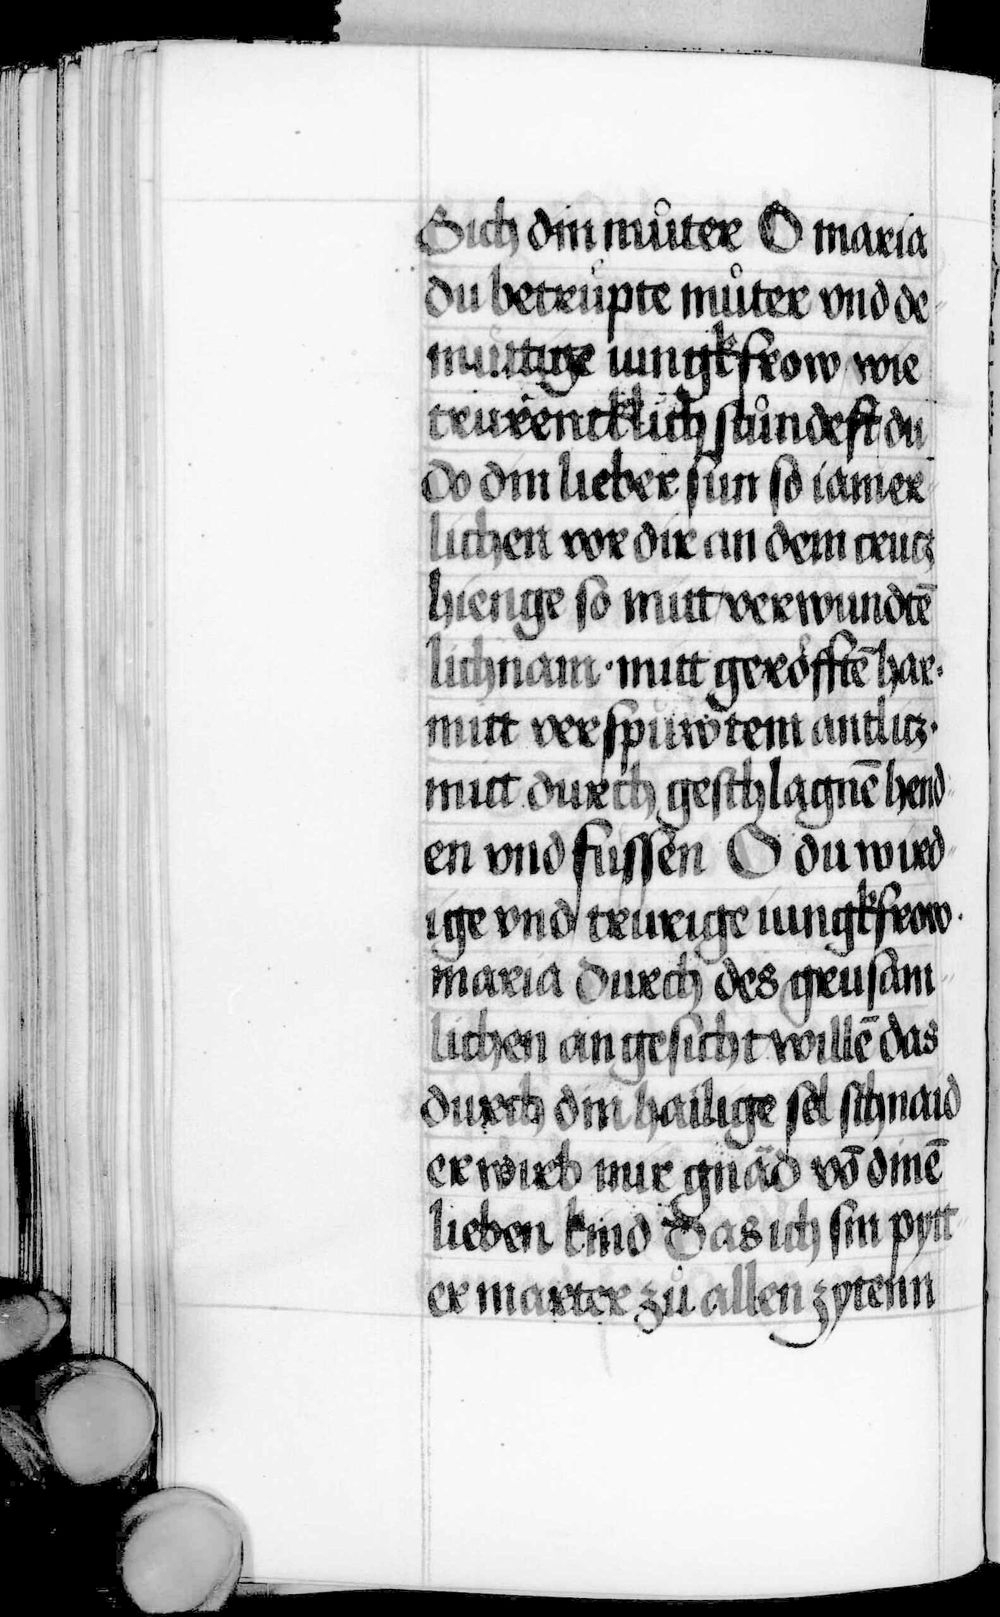 Sich din muͦter O maria
du betruͤpte muͦter vnd de-
muͤttige iungkfrow wie
trurencklich stuͦndest du
do din lieber sun so iamer-
lichen vor dir an dem crutz
hienge so mitt verwundtē
lichnam · mitt geroͤfftē har·
mitt verspuͤwtem antlitz·
mitt durch geschlagnē hend-
en vnd fussen O du wird-
ige vnd trurige iungkfrow·
maria durch des grusam-
lichen angesicht willē das
durch din hailige sel schnaid
erwirb mir gnad vō dinē
lieben kind Das ich sin pytt-
er marter zuͦ allen zytenn